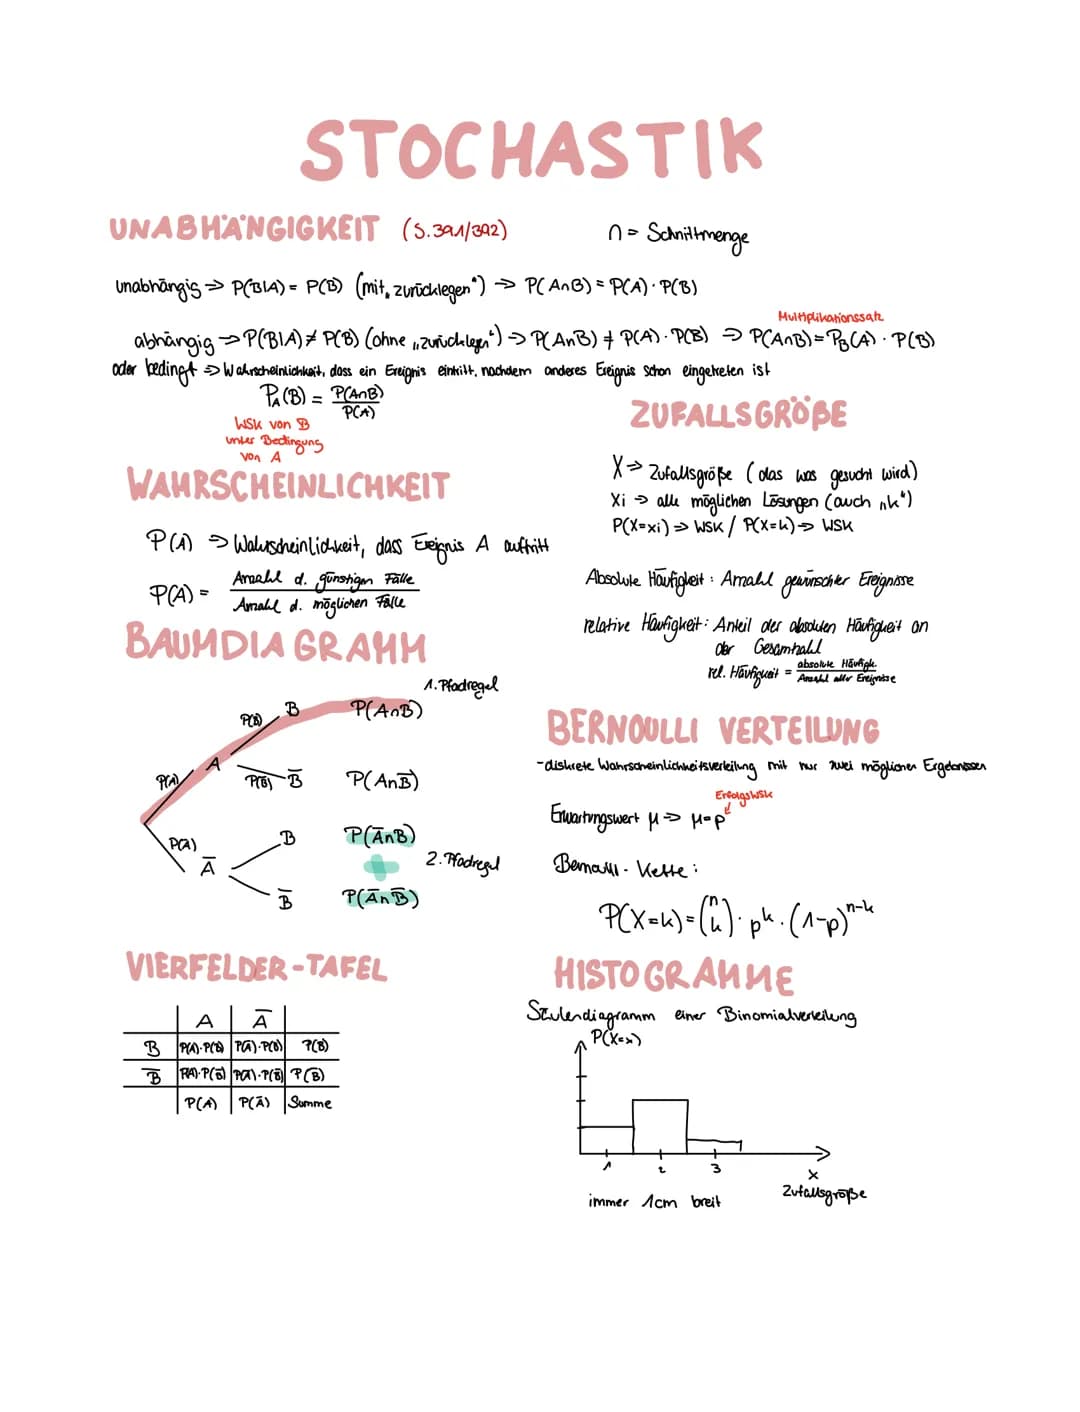 STOCHASTIK
UNABHÄNGIGKEIT (S.391/392)
∩ = Schnittmenge
unabhängig => P(B|A) = P(B) (mit „zurücklegen") => P(A∩B) = P(A) · P(B)
Multiplikationssatz
abhängig => P(B|A) ≠ P(B) (ohne „zurücklegen") => P(A∩B) ≠ P(A) · P(B) => P(A∩B) = P_B(A) · P(B)
oder bedingt => Wahrscheinlichkeit, dass ein Ereignis eintritt, nachdem anderes Ereignis schon eingetreten ist
P_A(B) = P(A∩B) / P(A)
WSK von B
unter Bedingung
von A
WAHRSCHEINLICHKEIT
P(A) => Wahrscheinlichkeit, dass Ereignis A auftritt
P(A) = Anzahl d. günstigen Fälle / Anzahl d. möglichen Fälle
BAUMDIAGRAMM
1. Pfadregel
P(B) B P(A∩B)
P(A) A
P(B̅) B̅ P(A∩B̅)
P(A̅) A̅
B P(A̅∩B)
+ 2. Pfadregel
B̅ P(A̅∩B̅)
VIERFELDER-TAFEL
A A̅
B P(A)·P(B) P(A̅)·P(B) P(B)
B̅ P(A)·P(B̅) P(A̅)·P(B̅) P(B̅)
P(A) P(A̅) Summe
ZUFALLSGRÖßE
X => Zufallsgröße (das was gesucht wird)
Xi => alle möglichen Lösungen (auch „k")
P(X=xi) => WSK / P(X=k) => WSK
Absolute Häufigkeit: Anzahl gewünschter Ereignisse
relative Häufigkeit: Anteil der absoluten Häufigkeit an
der Gesamtzahl
rel. Häufigkeit = absolute Häufigk. / Anzahl aller Ereignisse
BERNOULLI VERTEILUNG
- diskrete Wahrscheinlichkeitsverteilung mit nur zwei möglichen Ergebnissen
ErfolgsWSK
Erwartungswert μ => μ=p
Bernoulli-Kette:
P(X=k) = (n k) · p^k · (1-p)^n-k
HISTOGRAMME
Säulendiagramm einer Binomialverteilung
P(X=x)
1 2 3
x
Zufallsgröße
immer 1cm breit